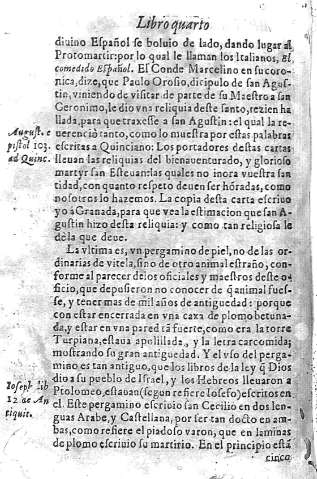 Libro quarto
diuino Español se boluio de lado, dando lugar al
Protomartir: por lo qual le llaman los Italianos, El
comedido Español. El Conde Marcelino en su coro-
nica, dize, que Paulo Orosio, dicipulo de san Agus-
tin, viniendo de visitar de parte de su Maestro a san
Geronimo, le dio vna reliquia deste santo, rezien ha
llada, para que traxesse a san Agustin: el qual la re-
uerenciò tanto, como lo muestra por estas palabras
August. e
pistol 103.
ad Quinc.
escritas a Quinciano: Los portadores destas cartas
lleuan las reliquias del bienauenturado, y glorioso
martyr san Esteuan: las quales no inora vuestra san
tidad, con quanto respeto deuen ser hõradas, como
nosotros lo hazemos. La copia desta carta escriuo
yo à Granada, para que vea la estimacion que san A
gustin hizo desta reliquia: y como tan religiosa le
dè la que deue.
La vltima es, vn pergamino de piel, no de las or-
dinarias de vitela, sino de otro animal estraño, con-
forme al parecer de los oficiales y maestros deste o-
ficio, que depusieron no conocer de q̃ animal fues-
se, y tener mas de mil años de antiguedad: porque
con estar encerrada en vna caxa de plomo betuna-
da, y estar en vna pared tã fuerte, como era la torre
Turpiana, estaua apolillada, y la letra carcomida;
mostrando su gran antiguedad. Y el vso del perga-
mino es tan antiguo, que los libros de la ley q̃ Dios
dio a su pueblo de Israel, y los Hebreos lleuaron a
Ioseph. lib
12 de An
tiquit.
Ptolomeo, estauan (segun refiere Iosefo) escritos en
el. Este pergamino escriuio san Cecilio en dos len-
guas Arabe, y Castellana, por ser tan docto en am-
bas, como refiere el piadoso varon, que en laminas
de plomo escriuio su martirio. En el principio està
cinco